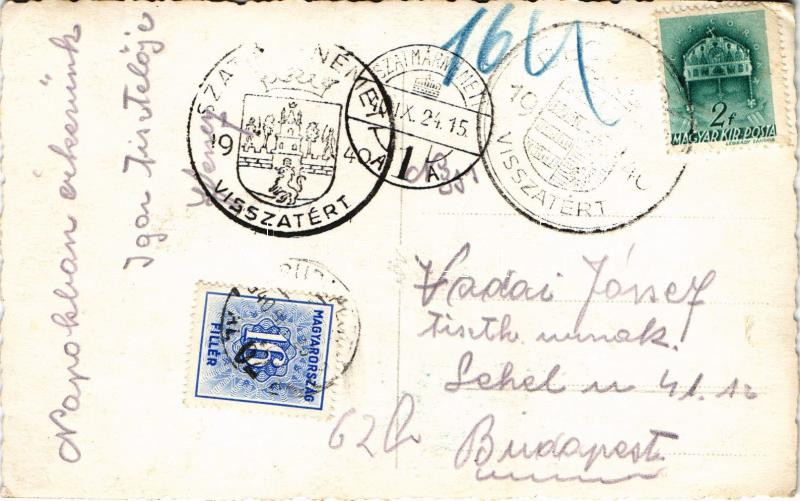 Napokban érkezünk
Igaz tisztelője
SZATMÁRNÉMETI
1940
VISSZATÉRT
SZATMÁRNÉMETI
IX. 24. 15.
1A
164
19
VISSZATÉRT
2f
MAGYAR KIR. POSTA
LÉGRÁDY SÁNDOR
MAGYARORSZÁG
16
FILLÉR
Vadai József
tiszth. urnak.
Lehel u 41. sz
Budapest